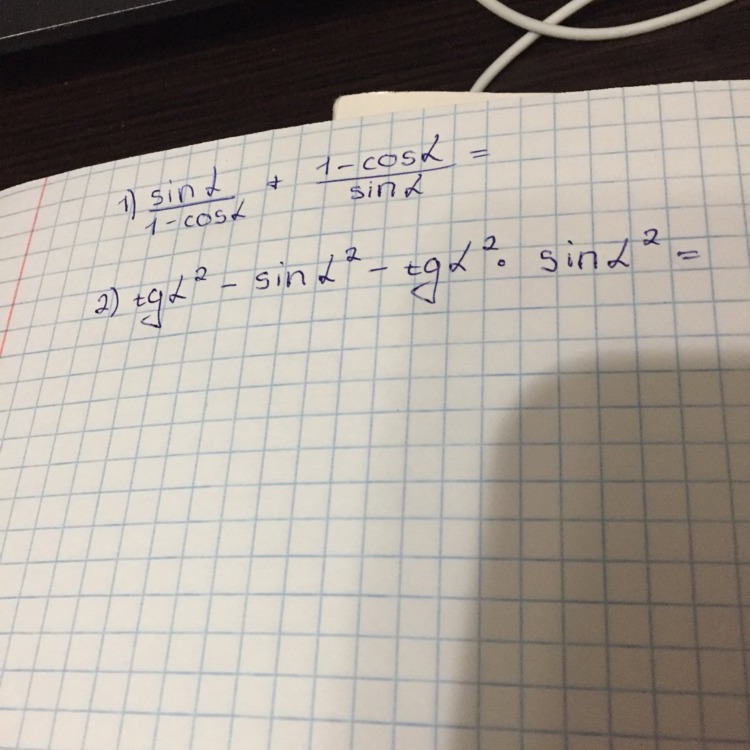 1) sin α / 1-cos α + 1-cos α / sin α =
2) tg α² - sin α² - tg α² · sin α² =